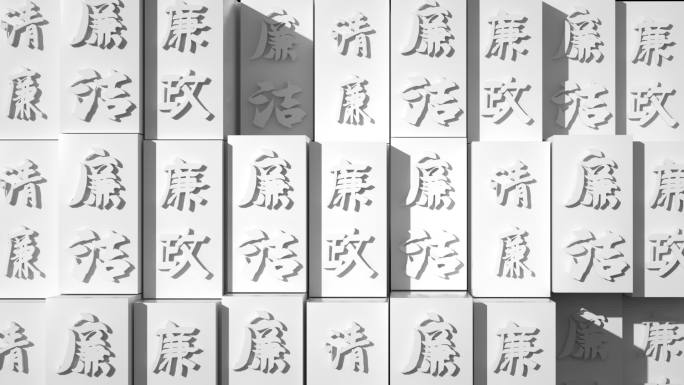 清廉
廉洁
廉政
廉洁
清廉
廉洁
廉政
廉洁
廉政
清廉
廉洁
廉政
廉洁
廉政
廉洁
清廉
廉洁
廉政
清
廉
廉
廉
清
廉
廉
廉
廉